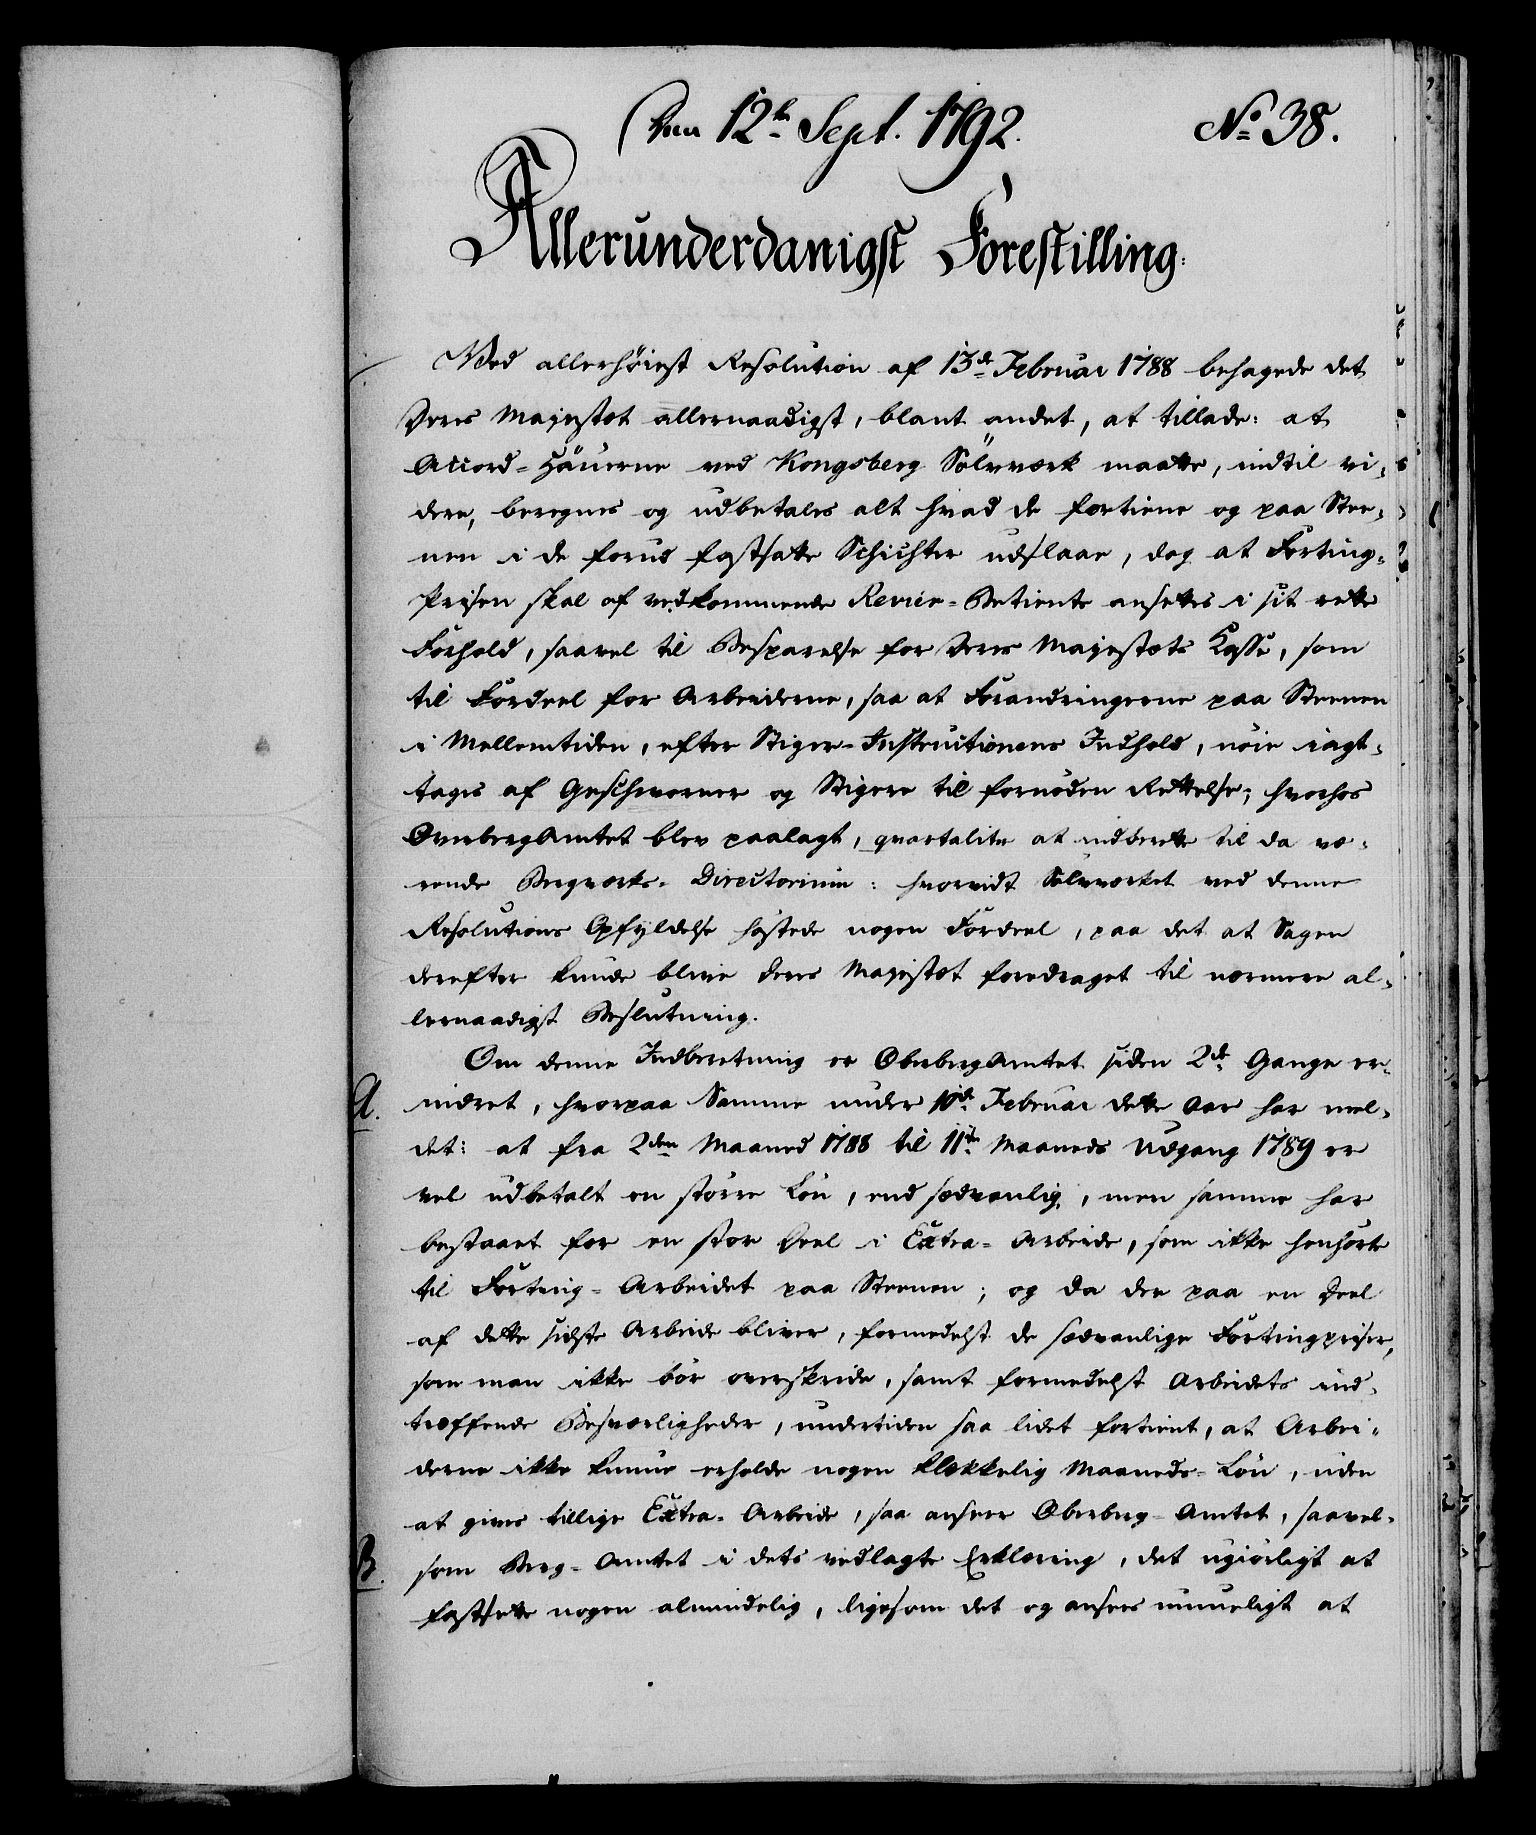 Den 12te Sept. 1792. No 38.
Allerunderdanigst Forestilling.
Ved allerhöiest Resolution af 13de Februar 1788 behagede det
Deres Majestæt allernaadigst, blant andet, at tillade: at
Accord-Häuerne ved Kongsberg Sölvværk maatte, indtil vi-
dere, beregnes og udbetales alt hvad de fortiene og paa Stee-
nen i de forud fastsatte Schichter udslaae, dog at Forting-
Prisen skal af vedkommende Revier-Betiente ansettes i sit rette
Forhold, saavel til Besparelse for Deres Majestæts Casse, som
til Fordeel for Arbeiderne, saa at Forandringerne paa Steenen
i Mellemtiden, efter Stiger-Instructionens Indhold, nöie iagt-
tages af Geschworner og Stigere til fornöden Rettelse; hvorhos
OverbergAmtet blev paalagt, qvartaliter at indberette til da væ-
rende Bergværks-Directorium: hvorvidt Sölvværket ved denne
Resolutions Opfyldelse höstede nogen Fordeel, paa det at Sagen
derefter kunde blive Deres Majestæt foredraget til nærmere al-
lernaadigst Beslutning.
Om denne Indberetning er OberbergAmtet siden 2de Gange er-
A. indret, hvorpaa Samme under 10de Februar dette Aar har mel-
det: at fra 2den Maaned 1788 til 11te Maaneds Udgang 1789 er
vel udbetalt en större Lön, end sædvanlig, men samme har
bestaaet for en stor Deel i Extra-Arbeide, som ikke henhörte
til Forting-Arbeidet paa Steenen; og da der paa en Deel
af dette sidste Arbeide bliver, formedelst de sædvanlige Fortingpriser,
som man ikke bör overskride, samt formedelst Arbeidets ind-
træffende Besværligheder, undertiden saa lidet fortient, at Arbei-
derne ikke kunne erholde nogen klækkelig Maaneds-Lön, uden
at gives tillige Extra-Arbeide, saa anseer Oberberg-Amtet, saavel-
B. som Berg-Amtet i dets vedlagte Erklæring, det ugiörligt at
fastsette nogen almindelig, ligesom det og ansees umueligt at